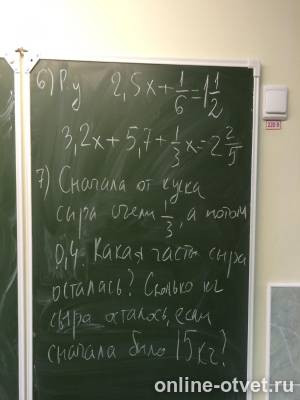 6) Р.у 2,5x+1/6=1 1/2
3,2x+5,7+1/3x=2 2/5
7) Сначала от куска
сыра съели 1/3, а потом
0,4. Какая часть сыра
осталась? Сколько кг
сыра осталось, если
сначала было 15кг?
220 В
online-otvet.ru